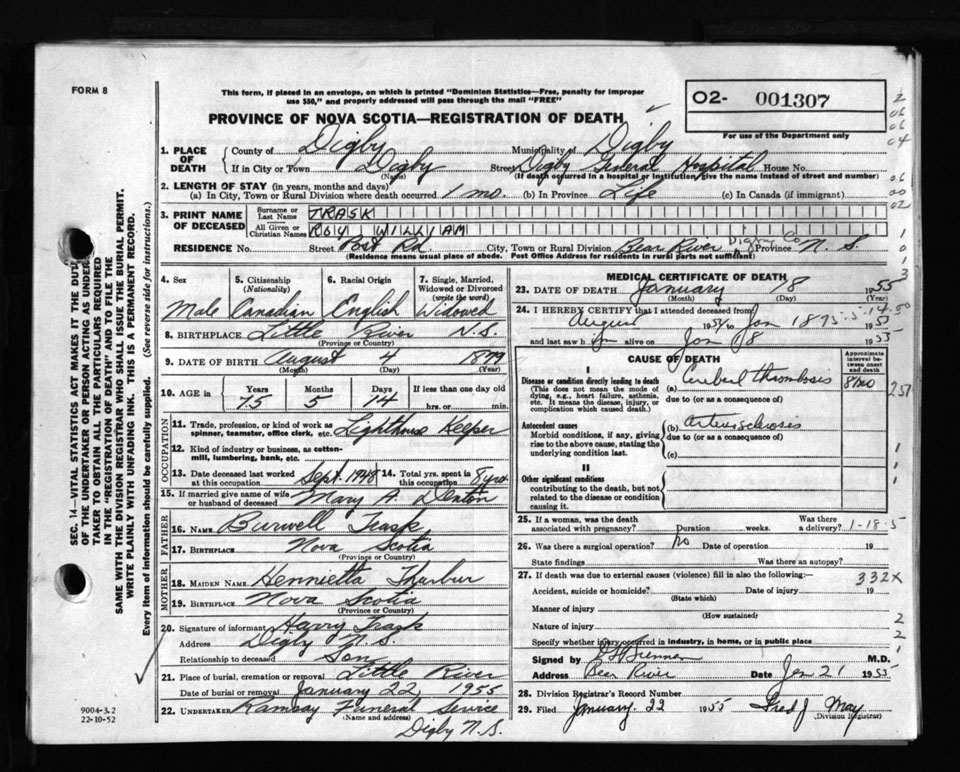 FORM 8
This form, if placed in an envelope, on which is printed "Dominion Statistics—Free, penalty for improper
use $50," and properly addressed will pass through the mail "FREE"
PROVINCE OF NOVA SCOTIA—REGISTRATION OF DEATH
O2- 001307
For use of the Department only
1. PLACE OF DEATH County of Digby Municipality of Digby
If in City or Town Digby Street Digby General Hospital House No.
(Name) (If death occurred in a hospital or institution, give the name instead of street and number)
2. LENGTH OF STAY (in years, months and days)
(a) In City, Town or Rural Division where death occurred 1 mo. (b) In Province Life (c) In Canada (if immigrant)
3. PRINT NAME OF DECEASED Surname or Last Name TRASK
All Given or Christian Names ROY WILLIAM
RESIDENCE No. Street Post Rd. City, Town or Rural Division Bear River Digby Co Province N.S.
(Residence means usual place of abode. Post Office Address for residents in rural parts not sufficient)
4. Sex 5. Citizenship (Nationality) 6. Racial Origin 7. Single, Married, Widowed or Divorced (write the word)
Male Canadian English Widowed
8. BIRTHPLACE Little River N.S.
(Province or Country)
9. DATE OF BIRTH August 4 1879
(Month) (Day) (Year)
10. AGE in Years Months Days If less than one day old
75 5 14 hrs. or min.
OCCUPATION
11. Trade, profession, or kind of work as spinner, teamster, office clerk, etc. Lighthouse Keeper
12. Kind of industry or business, as cotton-mill, lumbering, bank, etc.
13. Date deceased last worked at this occupation Sept. 1948 14. Total yrs. spent in this occupation 8 yrs.
15. If married give name of wife or husband of deceased Mary A. Denton
FATHER
16. NAME Burwell Trask
17. BIRTHPLACE Nova Scotia
(Province or Country)
MOTHER
18. MAIDEN NAME Henrietta Thurber
19. BIRTHPLACE Nova Scotia
(Province or Country)
20. Signature of informant Harry Trask
Address Digby N.S.
Relationship to deceased Son
21. Place of burial, cremation or removal Little River
Date of burial or removal January 22, 1955
22. UNDERTAKER Ramsay Funeral Service
(Name and address)
Digby N.S.
MEDICAL CERTIFICATE OF DEATH
23. DATE OF DEATH January 18 1955
(Month) (Day) (Year)
24. I HEREBY CERTIFY that I attended deceased from:
August 1954 to Jan 18 1955
and last saw h im alive on Jan 18 1955
CAUSE OF DEATH
Approximate interval between onset and death
I
Disease or condition directly leading to death (a) Cerebral thrombosis 8 mo
(This does not mean the mode of dying, e.g., heart failure, asthenia, etc. It means the disease, injury, or complication which caused death.)
due to (or as a consequence of)
Antecedent causes (b) Arteriosclerosis
Morbid conditions, if any, giving rise to the above cause, stating the underlying condition last.
due to (or as a consequence of)
(c)
II
Other significant conditions
contributing to the death, but not related to the disease or condition causing it.
25. If a woman, was the death associated with pregnancy? Duration weeks. Was there a delivery? 1-18-5
26. Was there a surgical operation? no Date of operation 19
State findings Was there an autopsy?
27. If death was due to external causes (violence) fill in also the following:— 332X
Accident, suicide or homicide? Date of injury 19
(State which)
Manner of injury
(How sustained)
Nature of injury
Specify whether injury occurred in industry, in home, or in public place
Signed by Brennan M.D.
Address Bear River Date Jan 21 1955
28. Division Registrar's Record Number
29. Filed January 22 1955 Fred J May
(Division Registrar)
SEC. 14—VITAL STATISTICS ACT MAKES IT THE DUTY
OF THE UNDERTAKER OR PERSON ACTING AS UNDER-
TAKER TO OBTAIN ALL THE PARTICULARS REQUIRED
IN THE "REGISTRATION OF DEATH" AND TO FILE THE
SAME WITH THE DIVISION REGISTRAR WHO SHALL ISSUE THE BURIAL PERMIT.
WRITE PLAINLY WITH UNFADING INK. THIS IS A PERMANENT RECORD.
Every item of information should be carefully supplied. (See reverse side for instructions.)
9004-3.2
22-10-52